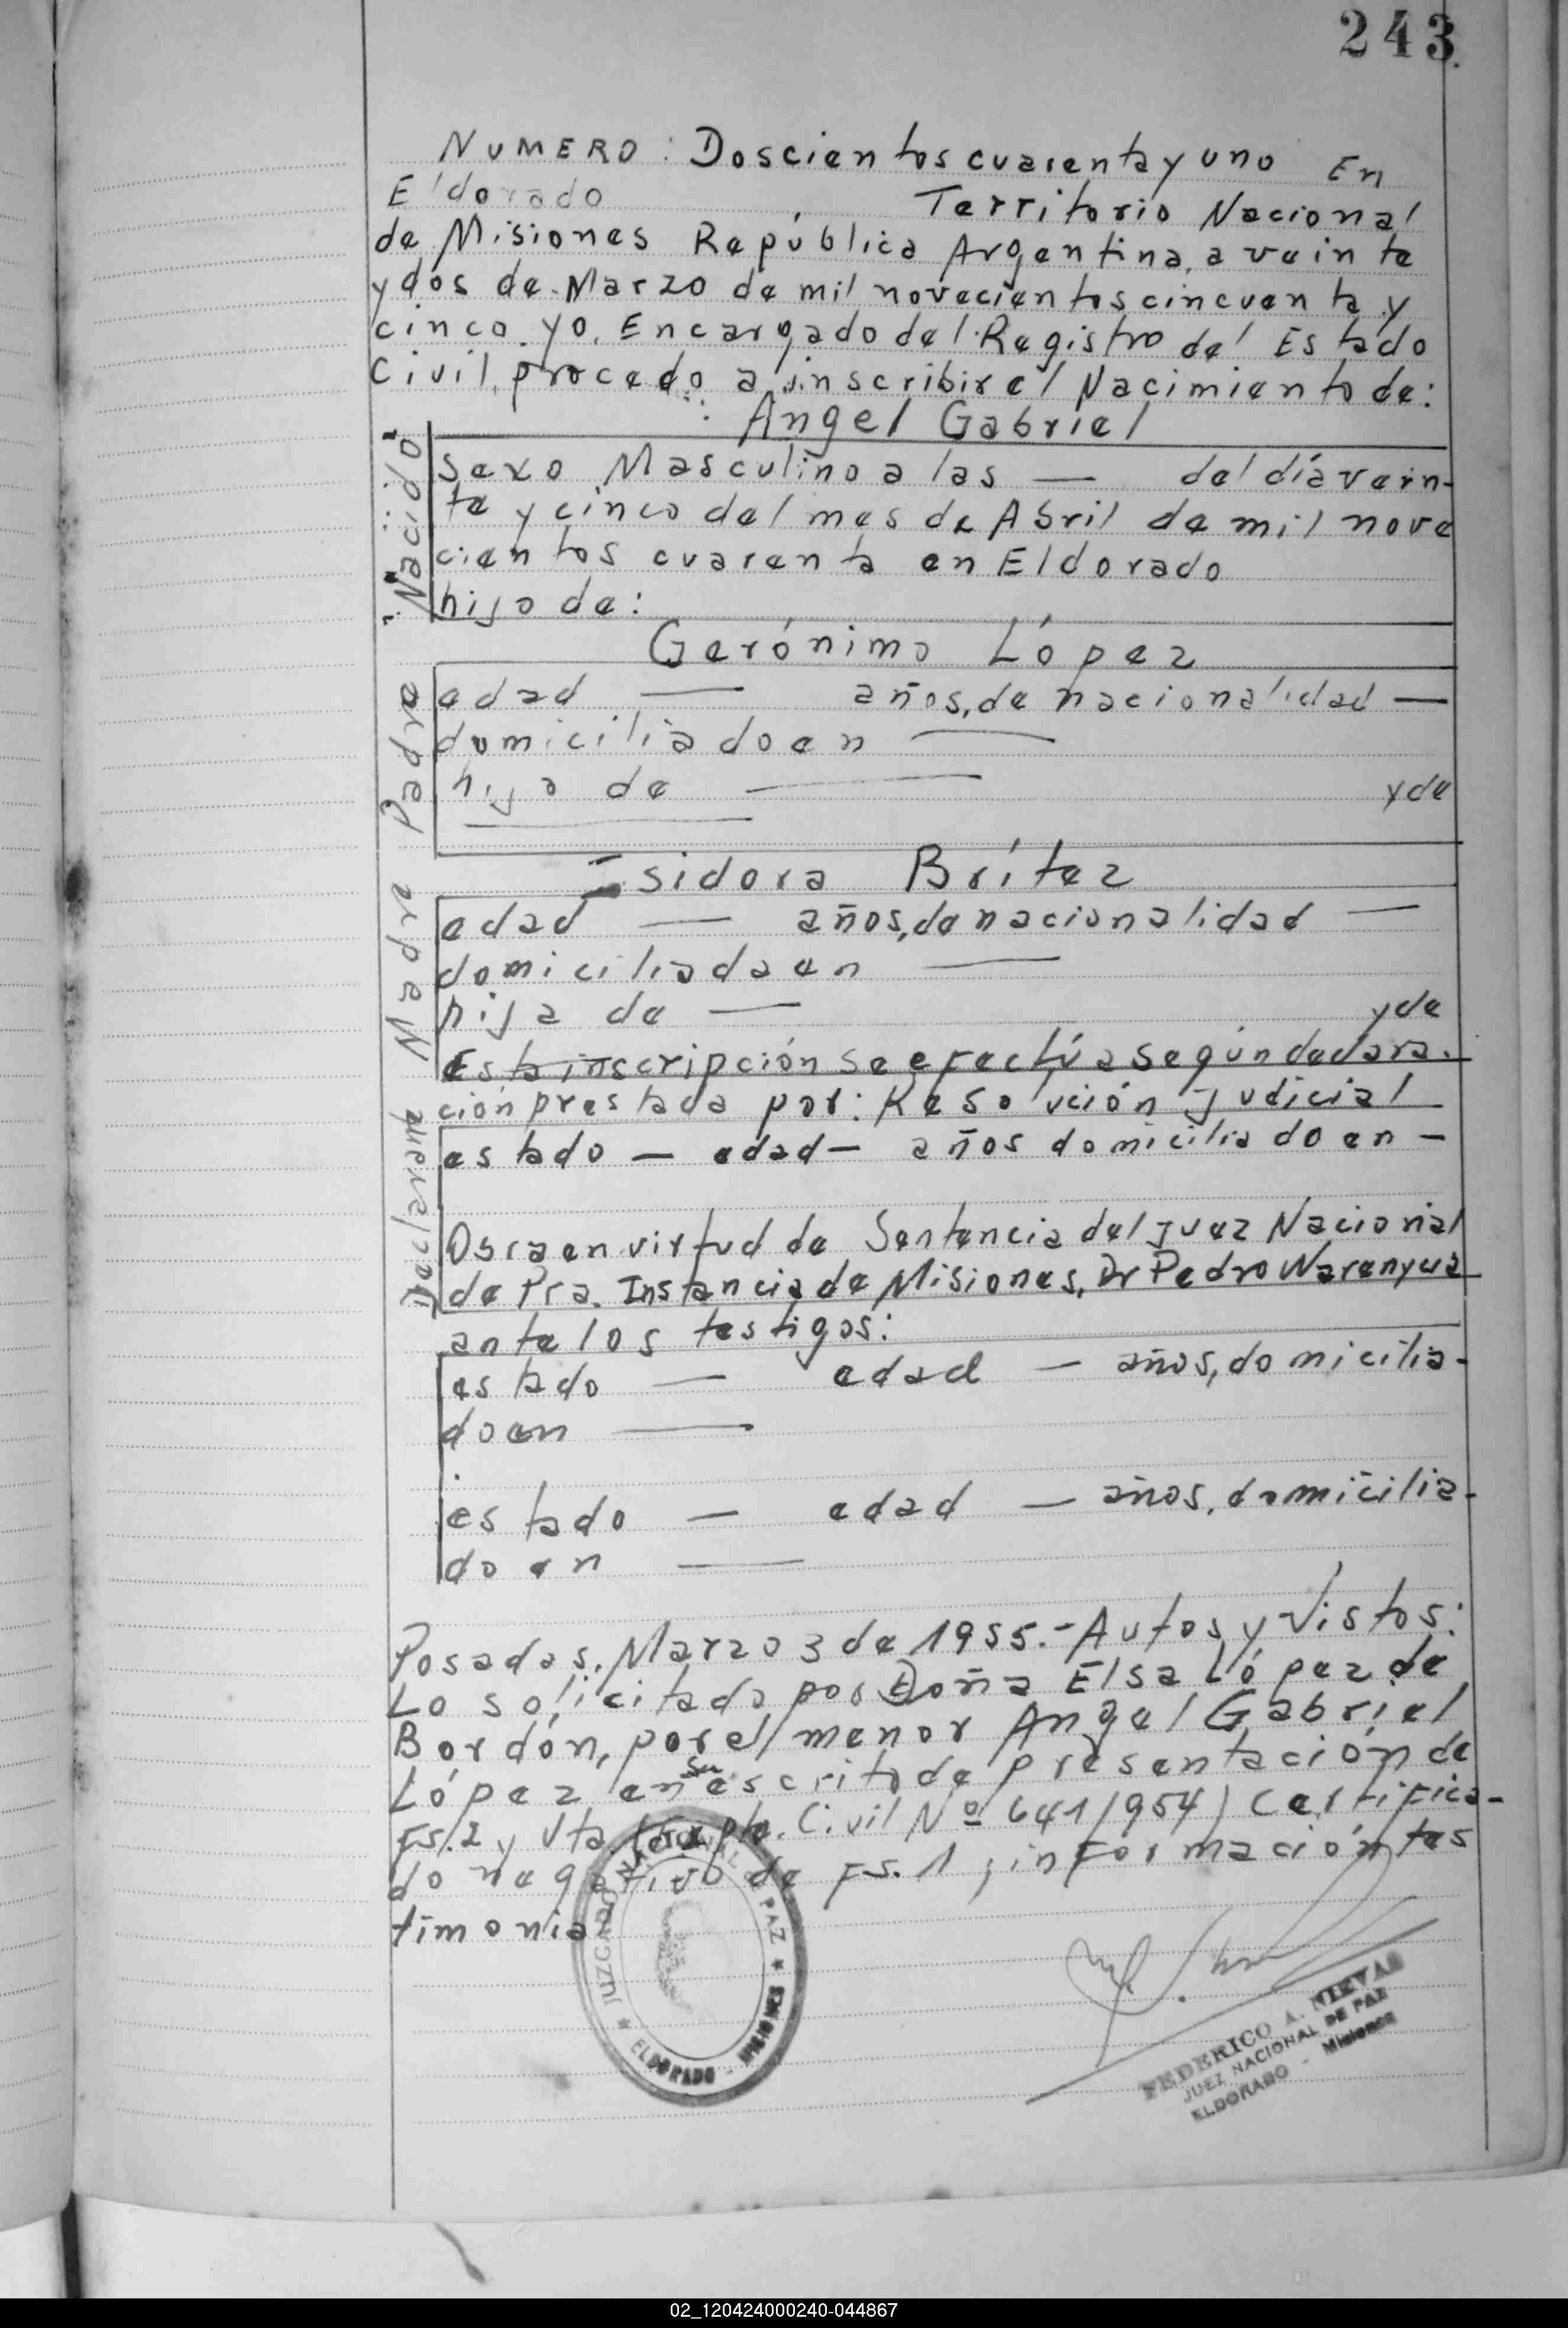 243
NUMERO: Doscientos cuarenta y uno En
Eldorado Territorio Nacional
de Misiones República Argentina, a vein te
y dos de Marzo de mil novecientos cincuenta y
cinco yo, Encargado del Registro del Estado
Civil, procedo a inscribir el Nacimiento de:
Angel Gabriel
Nacido
sexo Masculino a las — del día vein-
te y cinco del mes de Abril de mil nove
cientos cuarenta en Eldorado
hijo de:
Gerónimo López
Padre
edad — años, de nacionalidad —
domiciliado en —
hijo de — y de
Isidora Brítez
Madre
edad — años, de nacionalidad —
domiciliada en —
hija de — y de
Esta inscripción se efectúa según declara-
ción prestada por: Resolución Judicial
Declarante
estado — edad — años domiciliado en —
Obra en virtud de Sentencia del Juez Nacional
de Pra. Instancia de Misiones, Dr Pedro
ante los testigos:
estado — edad — años, domicilia-
do en —
estado — edad — años, domicilia-
do en —
Posadas, Marzo 3 de 1955.- Autos y Vistos:
Lo solicitado por Doña Elsa López de
Bordón, por el menor Angel Gabriel
López en su escrito de presentación de
Fs. 2 y Vta. Civil Nº 641/954) Certifica-
do negativo de Fs. 1, información tes
timonia
JUZGADO NACIONAL DE PAZ
★ ELDORADO - MISIONES ★
FEDERICO A. NIEVAS
JUEZ NACIONAL DE PAZ
ELDORADO - Misiones
02_120424000240-044867